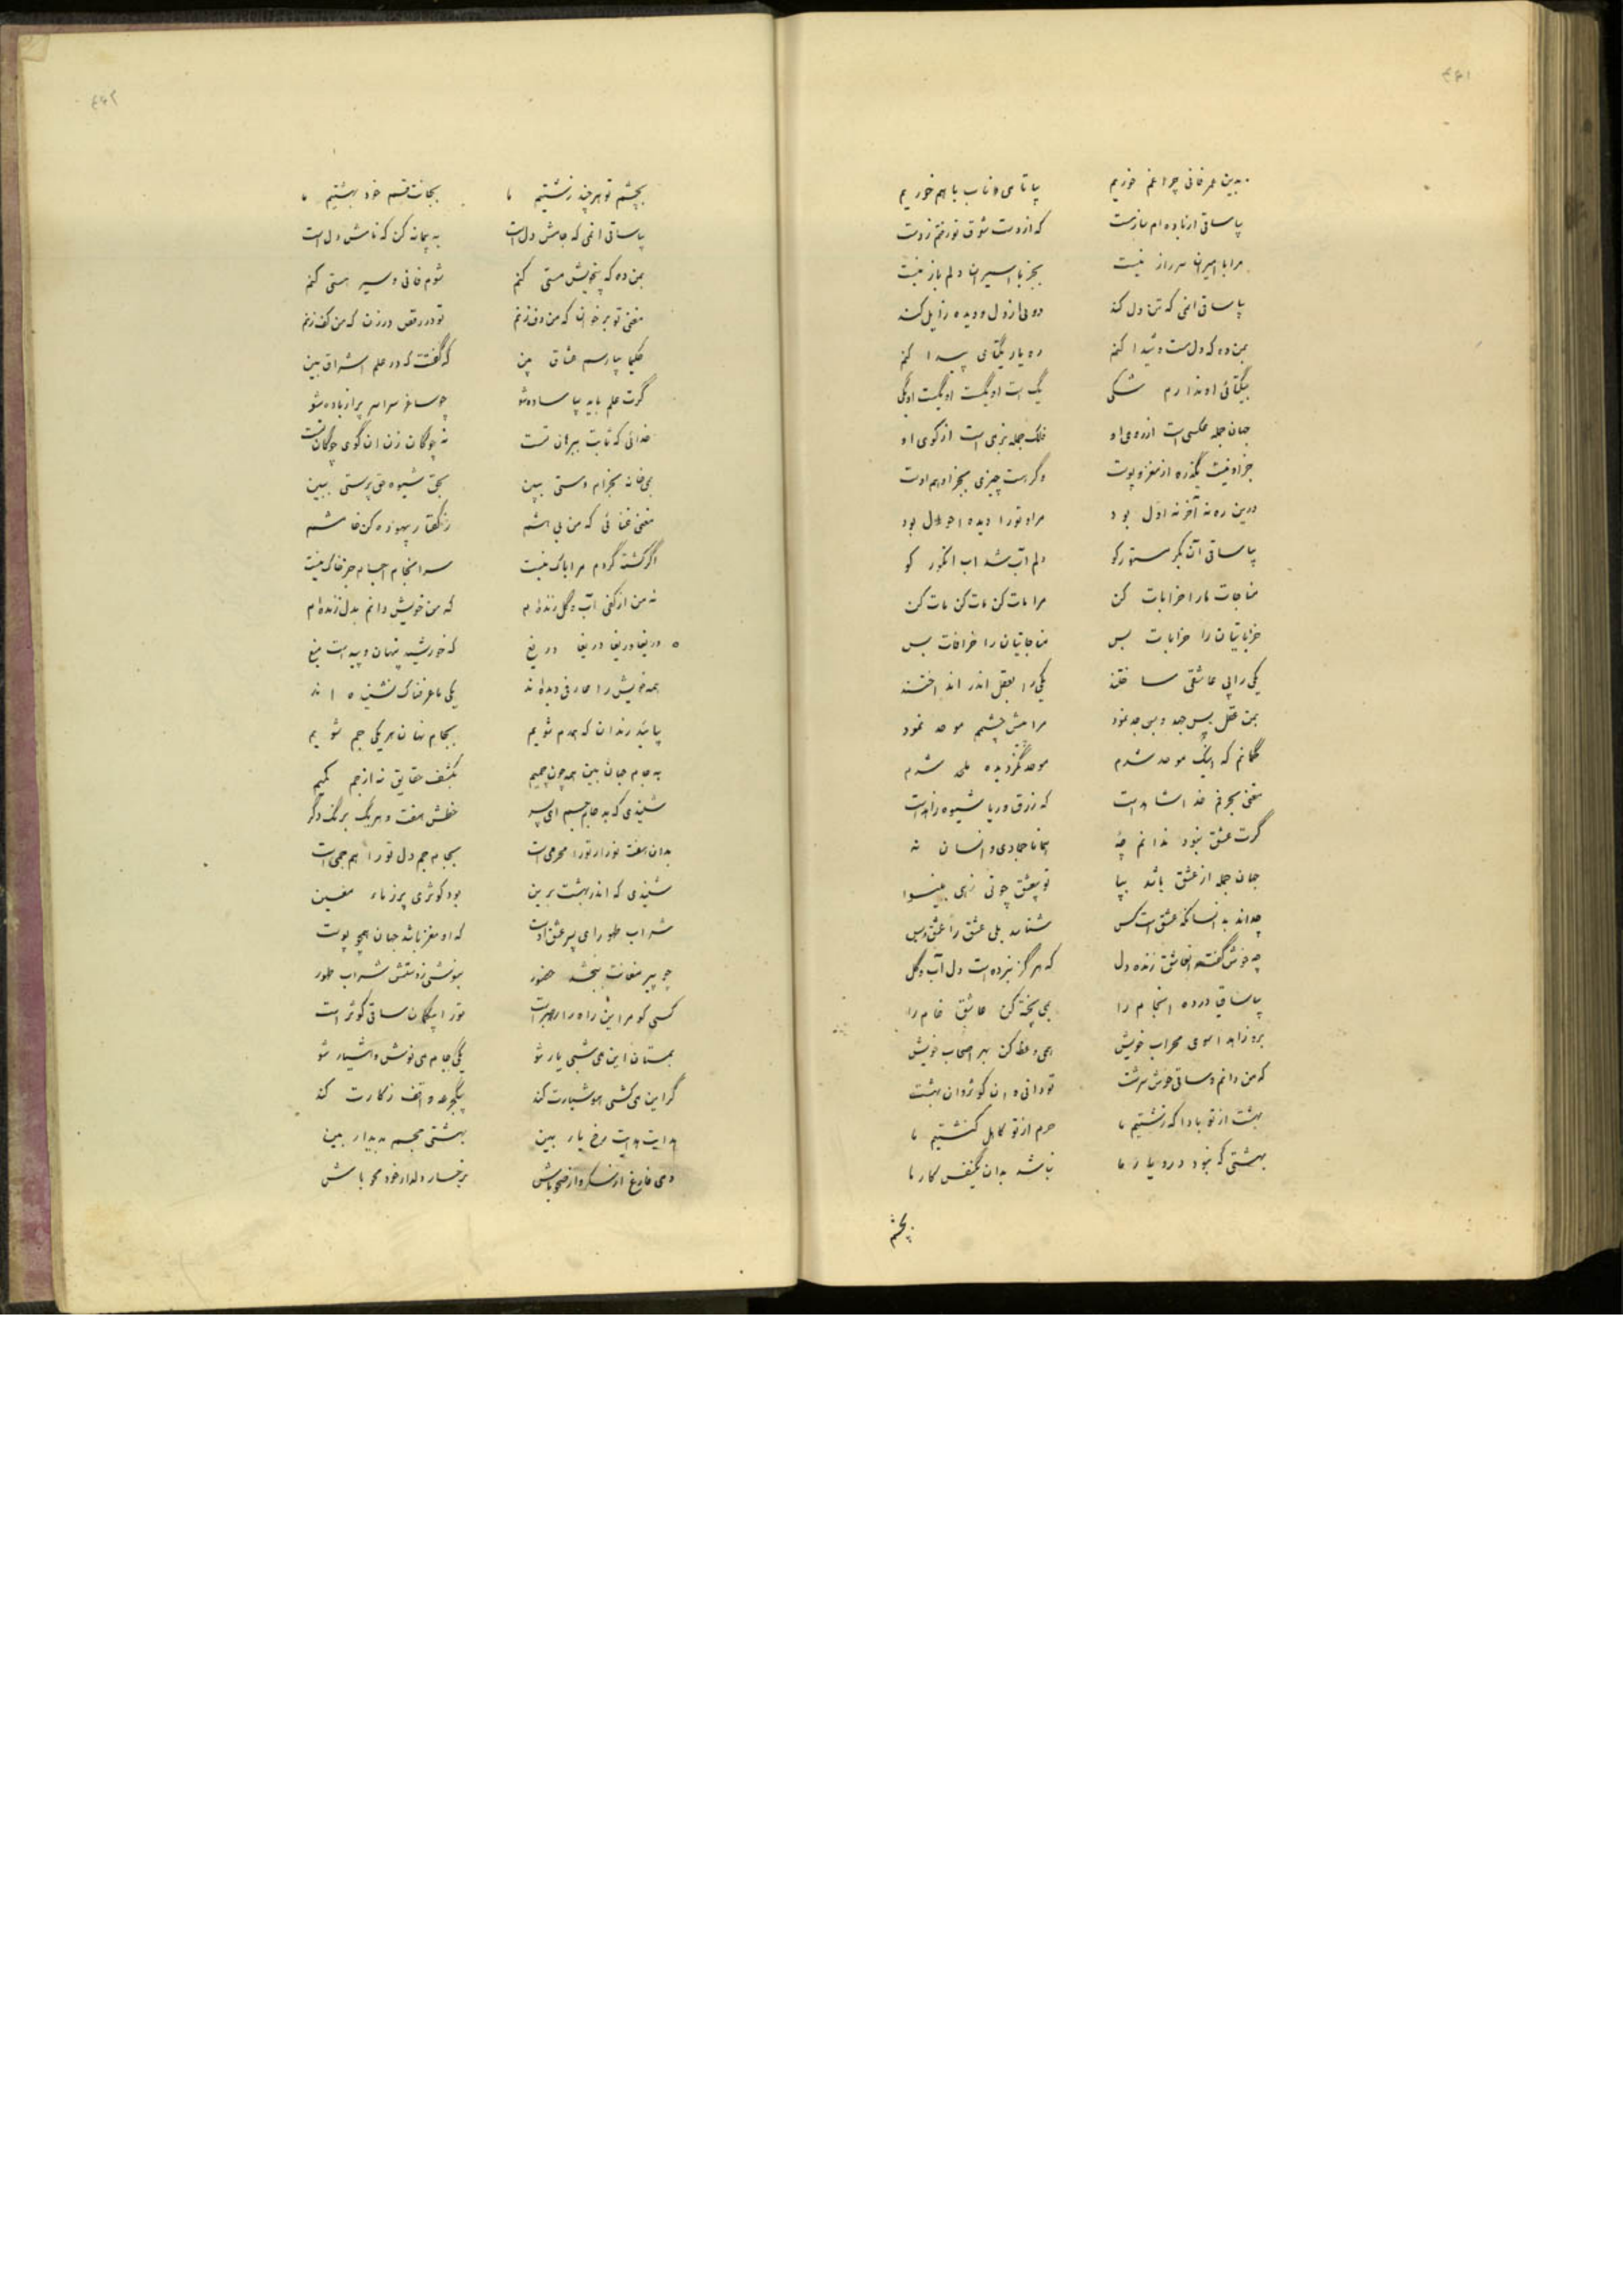 ۴۶۱
بدین عمر فانی چرا غم خوریم بیا تا می ناب با هم خوریم
بیا ساقی از باده ام مست که از دست شوق تو رفتم ز دست
مرا با امیران سر راز نیست بجز با اسیران دلم باز نیست
بیا ساقی آن می که تن دل کند دوئی از دل و دیده زایل کند
بمن ده که دل مست و شیدا کنم ره یار یکتای پیدا کنم
بیکتائی او ندارم شکی یک است او یکیست او یکیست او یکی
جهان جمله عکسی است از روی او فلک جمله بزمی است از کوی او
جز او نیست بگذر از مغز و پوست وگر هست چیزی بجز او هم اوست
درین ره نه آخر نه اول بود مر او تو را دیده احول بود
بیا ساقی آن بکر مستور کو دلم آب شد آب انگور کو
مناجات ما را خرابات کن مرا مات کن مات کن مات کن
خراباتیان را خرابات بس مناجاتیان را خرافات بس
یکی را پی عاشقی ساختند یکی را بعقل اندر انداختند
بمن عقل بس جهد و بس جد نمود مرا پیش چشمم موحد نمود
گمانم که اینک موحد شدم موحد نگردیده ملحد شدم
مغنی بحرفم خدا شاهد است که زرق و ریا شیوه زاهد است
گرت عشق نبود ندانم چهٔ همانا جمادی و انسان نهٔ
جهان جمله از عشق باشد بپا تو بیعشق چونی زهی بینوا
چه داند به انسانکه عشق است کس شناسد بلی عشق را عشق و بس
چه خوش گفت آن عاشق زنده دل که هرگز نبرده است دل آب و گل
بیا ساقی در ده آن جام را بمی پخته کن عاشق خام را
برو زاهدا سوی محراب خویش همی وعظ کن بهر اصحاب خویش
که من دانم و ساقی خوش سرشت تو دانی و آن کوثر و آن بهشت
بهشت از تو بادا که زشتیم ما حرم از تو کاهل کنشتیم ما
بهشتی که نبود درو یار ما نباشد بدان یکنفس کار ما
بچشم
۴۶۲
بچشم تو هر چند زشتیم ما بجانت قسم خود بهشتیم ما
بیا ساقی آن می که جامش دل است به پیمانه کن که نامش دل است
بمن ده که بیخویش مستی کنم شوم فانی و سیر هستی کنم
مغنی تو بر خوان که من دف زنم تو در رقص در زن که من کف زنم
حکیما بیا رسم عشاق بین که گفتت که در علم اشراق بین
گرت علم باید بیا ساده شو چو ساغر سراسر پر از باده شو
خدائی که ثابت ببرهان تست نه چوگان زن آن گوی چوگان تست
بمیخانه بخرام و مستی ببین بحق شیوه حق پرستی ببین
مغنی غنائی که من بیهشم ز گفتار بیهوده کن خامشم
اگر کشته گردم مرا باک نیست سرانجام اجسام جز خاک نیست
نه من از کفی آب و گل زنده ام که من خویش دانم بدل زنده ام
دریغا دریغا دریغا دریغ که خورشید پنهان و پیداست میغ
همه خویش را عارفی دیده اند یکی ما عرفناک نشنیده اند
بیائید رندان که همدم شویم بجام نهان هر یکی جم شویم
به جام جهان بین همه چون جمیم بکشف حقایق نه از جم کمیم
شنیدی که به جام جم ای پسر خطش هفت و هر یک برنگ دگر
بدان هفت نور ار تو را محرمی است بجام جم دل تو را هم جمی است
شنیدی که اندر بهشت برین بود کوثری پر ز ماء معین
شراب طهور ای پسر عشق اوست که او مغز باشد جهان همچو پوست
چو پیر مغانت ببخشد حضور بنوشی ز دستش شراب طهور
کسی کو مر این راه را رهبر است تو را بیگمان ساقی کوثر است
بمستان این می شبی یار شو یکی جام می نوش و هشیار شو
گر این می کشی هوشیارت کند بیکجرعه واقف ز کارت کند
هدایت هدایت رخ یار بین بهشتی مجسم بدیدار بین
دمی فارغ از سکر و از صحو باش برخسار دلدار خود محو باش